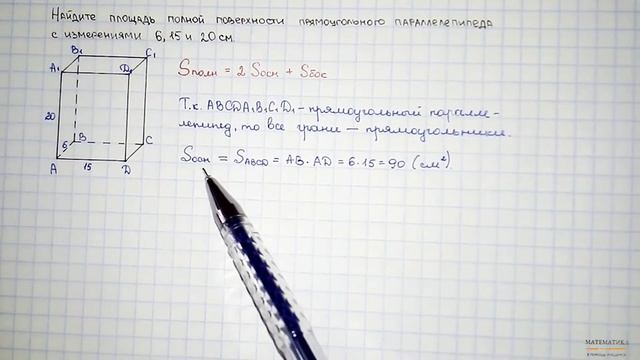 Найдите площадь полной поверхности прямоугольного параллелепипеда
с измерениями 6, 15 и 20 см.
B₁ C₁
A₁ D₁
Sполн = 2 Sосн + Sбос
Т.к. ABCDA₁B₁C₁D₁ - прямоугольный паралле-
лепипед, то все грани — прямоугольники.
20
6 B C
Sосн = SABCD = AB · AD = 6 · 15 = 90 (см²).
A 15 D
МАТЕМАТИКА